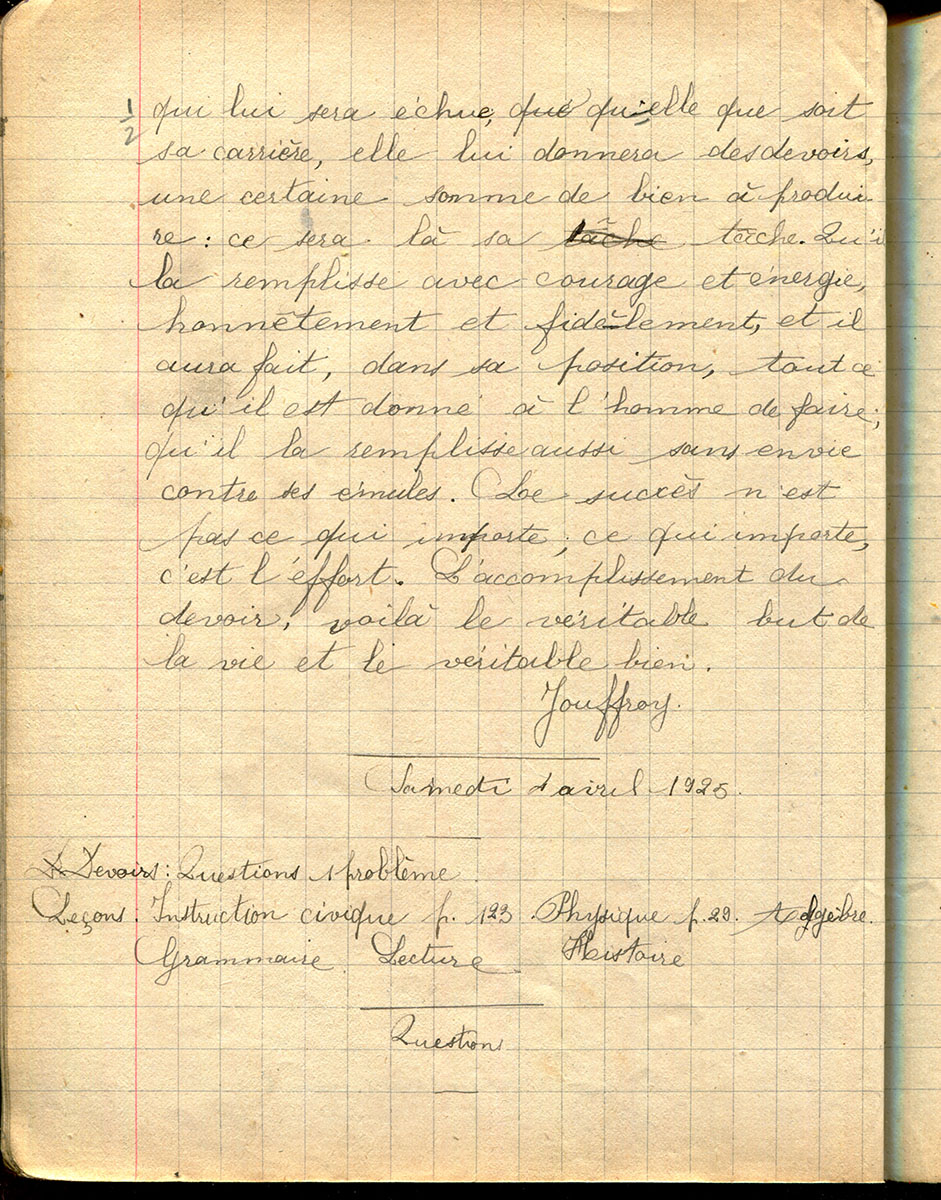 1/2 qui lui sera échue, que qu'elle que soit
sa carrière, elle lui donnera des devoirs,
une certaine somme de bien à produi-
re : ce sera là sa tâche tâche. Qu'il
la remplisse avec courage et énergie,
honnêtement et fidèlement, et il
aura fait, dans sa position, tout ce
qu'il est donné à l'homme de faire ;
qu'il la remplisse aussi sans envie
contre ses émules. Le succès n'est
pas ce qui importe ; ce qui importe,
c'est l'éffort. L'accomplissement du
devoir, voilà le véritable but de
la vie et le véritable bien.
Jouffroy.
Samedi 4 avril 1925.
Devoirs : Questions 1 problème.
Leçons. Instruction civique p. 123. Physique p. 29. Algèbre.
Grammaire Lecture Histoire
Questions